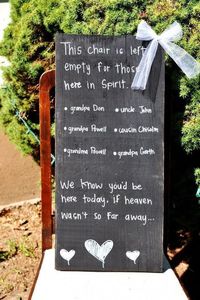 This chair is left
empty for those
here in Spirit.
• grandpa Don • uncle John
• grandpa Powell • cousin Chisholm
• grandma Powell • grandpa Garth
We know you'd be
here today, if heaven
wasn't so far away...